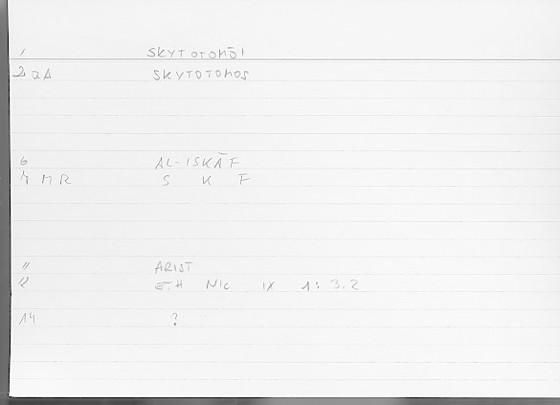 1 SKYTOTOMŌI
2 aA SKYTOTOMOS
6 AL-ISKĀF
7 MR S K F
11 ARIST
12 ETH NIC IX 1: 3.2
14 ?